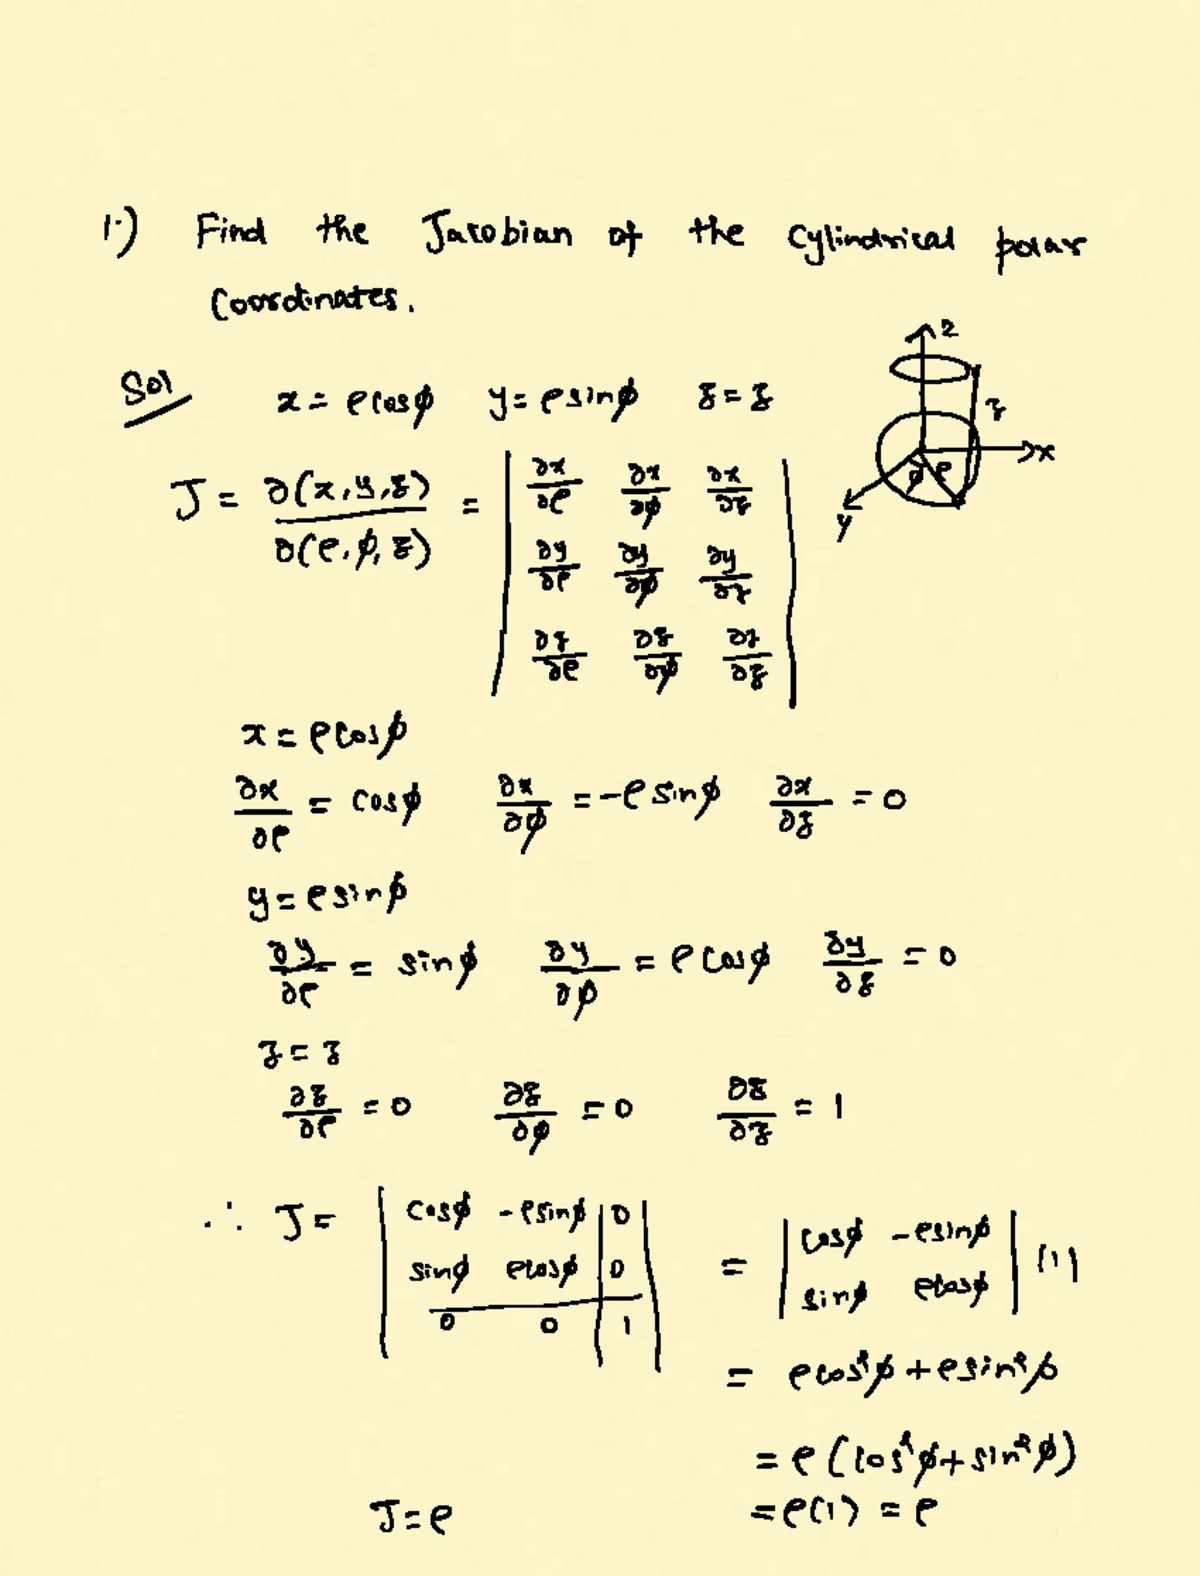 1.) Find the Jacobian of the Cylindrical polar
Coordinates.
Sol x = ρcosφ y = ρsinφ z = z
z
z
x
φ ρ
y
J = ∂(x,y,z) / ∂(ρ,φ,z) = | ∂x/∂ρ ∂x/∂φ ∂x/∂z |
| ∂y/∂ρ ∂y/∂φ ∂y/∂z |
| ∂z/∂ρ ∂z/∂φ ∂z/∂z |
x = ρcosφ
∂x/∂ρ = cosφ ∂x/∂φ = -ρ sinφ ∂x/∂z = 0
y = ρsinφ
∂y/∂ρ = sinφ ∂y/∂φ = ρ cosφ ∂y/∂z = 0
z = z
∂z/∂ρ = 0 ∂z/∂φ = 0 ∂z/∂z = 1
∴ J = | cosφ -ρsinφ 0 | = | cosφ -ρsinφ | (1)
| sinφ ρcosφ 0 | | sinφ ρcosφ |
| 0 0 1 |
= ρcos²φ + ρsin²φ
= ρ (cos²φ + sin²φ)
J = ρ = ρ(1) = ρ